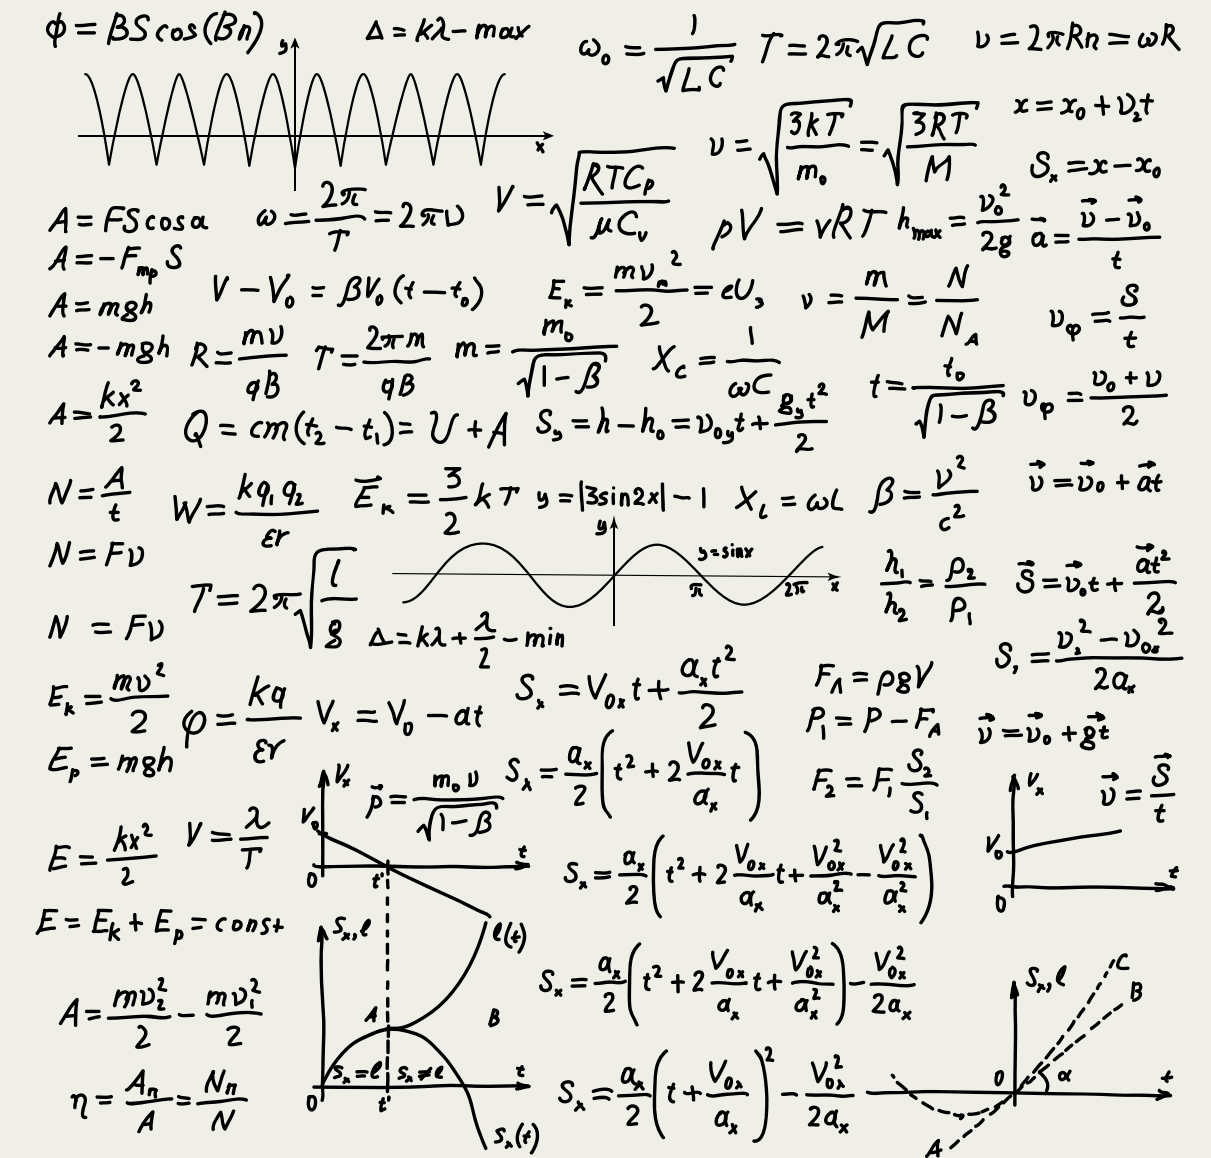 ϕ = BS cos(Bn)
Δ = kλ – max
ω₀ = 1/√(LC)
T = 2π√(LC)
υ = 2πRn = ωR
y
x
υ = √(3kT/m₀) = √(3RT/M)
x = x₀ + υ₂t
Sₓ = x – x₀
A = FS cosα
ω = 2π/T = 2πυ
V = √(RTCₚ/μCᵥ)
pV = νRT
h_max = υ₀²/2g
a⃗ = (υ⃗ – υ⃗₀)/t
A = –F_mp S
A = mgh
V – V₀ = βV₀(t – t₀)
E_k = mυ_m²/2 = eU₃
ν = m/M = N/N_A
υ_φ = S/t
A = –mgh
R = mυ/qB
T = 2πm/qB
m = m₀/√(1–β)
X_c = 1/ωC
t = t₀/√(1–β)
υ_φ = (υ₀ + υ)/2
A = kx²/2
Q = cm(t₂ – t₁) = U + A
S_y = h – h₀ = υ₀y t + g_y t²/2
N = A/t
W = kq₁q₂/εr
E⃗_k = 3/2 kT
y = |3sin2x| – 1
X_L = ωL
β = υ²/c²
υ⃗ = υ⃗₀ + a⃗t
N = Fυ
T = 2π√(l/g)
y
y=sinx
π
2π
x
h₁/h₂ = ρ₂/ρ₁
S⃗ = υ⃗₀t + a⃗t²/2
N = Fυ
Δ = kλ + λ/2 – min
E_k = mυ²/2
φ = kq/εr
Vₓ = V₀ – at
Sₓ = V₀ₓt + aₓt²/2
F_A = ρgV
P₁ = P – F_A
υ⃗ = υ⃗₀ + g⃗t
E_p = mgh
Sₓ = aₓ/2 (t² + 2 V₀ₓ/aₓ t)
F₂ = F₁ S₂/S₁
υ⃗ = S⃗/t
Vₓ
V₀
0
t'
t
p⃗ = m₀υ/√(1–β)
Vₓ
V₀
0
t
E = kx²/2
V = λ/T
Sₓ = aₓ/2 (t² + 2 V₀ₓ/aₓ t + V₀ₓ²/aₓ² – V₀ₓ²/aₓ²)
E = E_k + E_p = const
Sₓ,ℓ
ℓ(t)
A
B
Sₓ=ℓ
Sₓ≠ℓ
0
t'
t
Sₓ(t)
Sₓ = aₓ/2 (t² + 2 V₀ₓ/aₓ t + V₀ₓ²/aₓ²) – V₀ₓ²/2aₓ
A = mυ₂²/2 – mυ₁²/2
η = Aₙ/A = Nₙ/N
Sₓ = aₓ/2 (t + V₀ₓ/aₓ)² – V₀ₓ²/2aₓ
Sₓ,ℓ
C
B
0
α
t
A